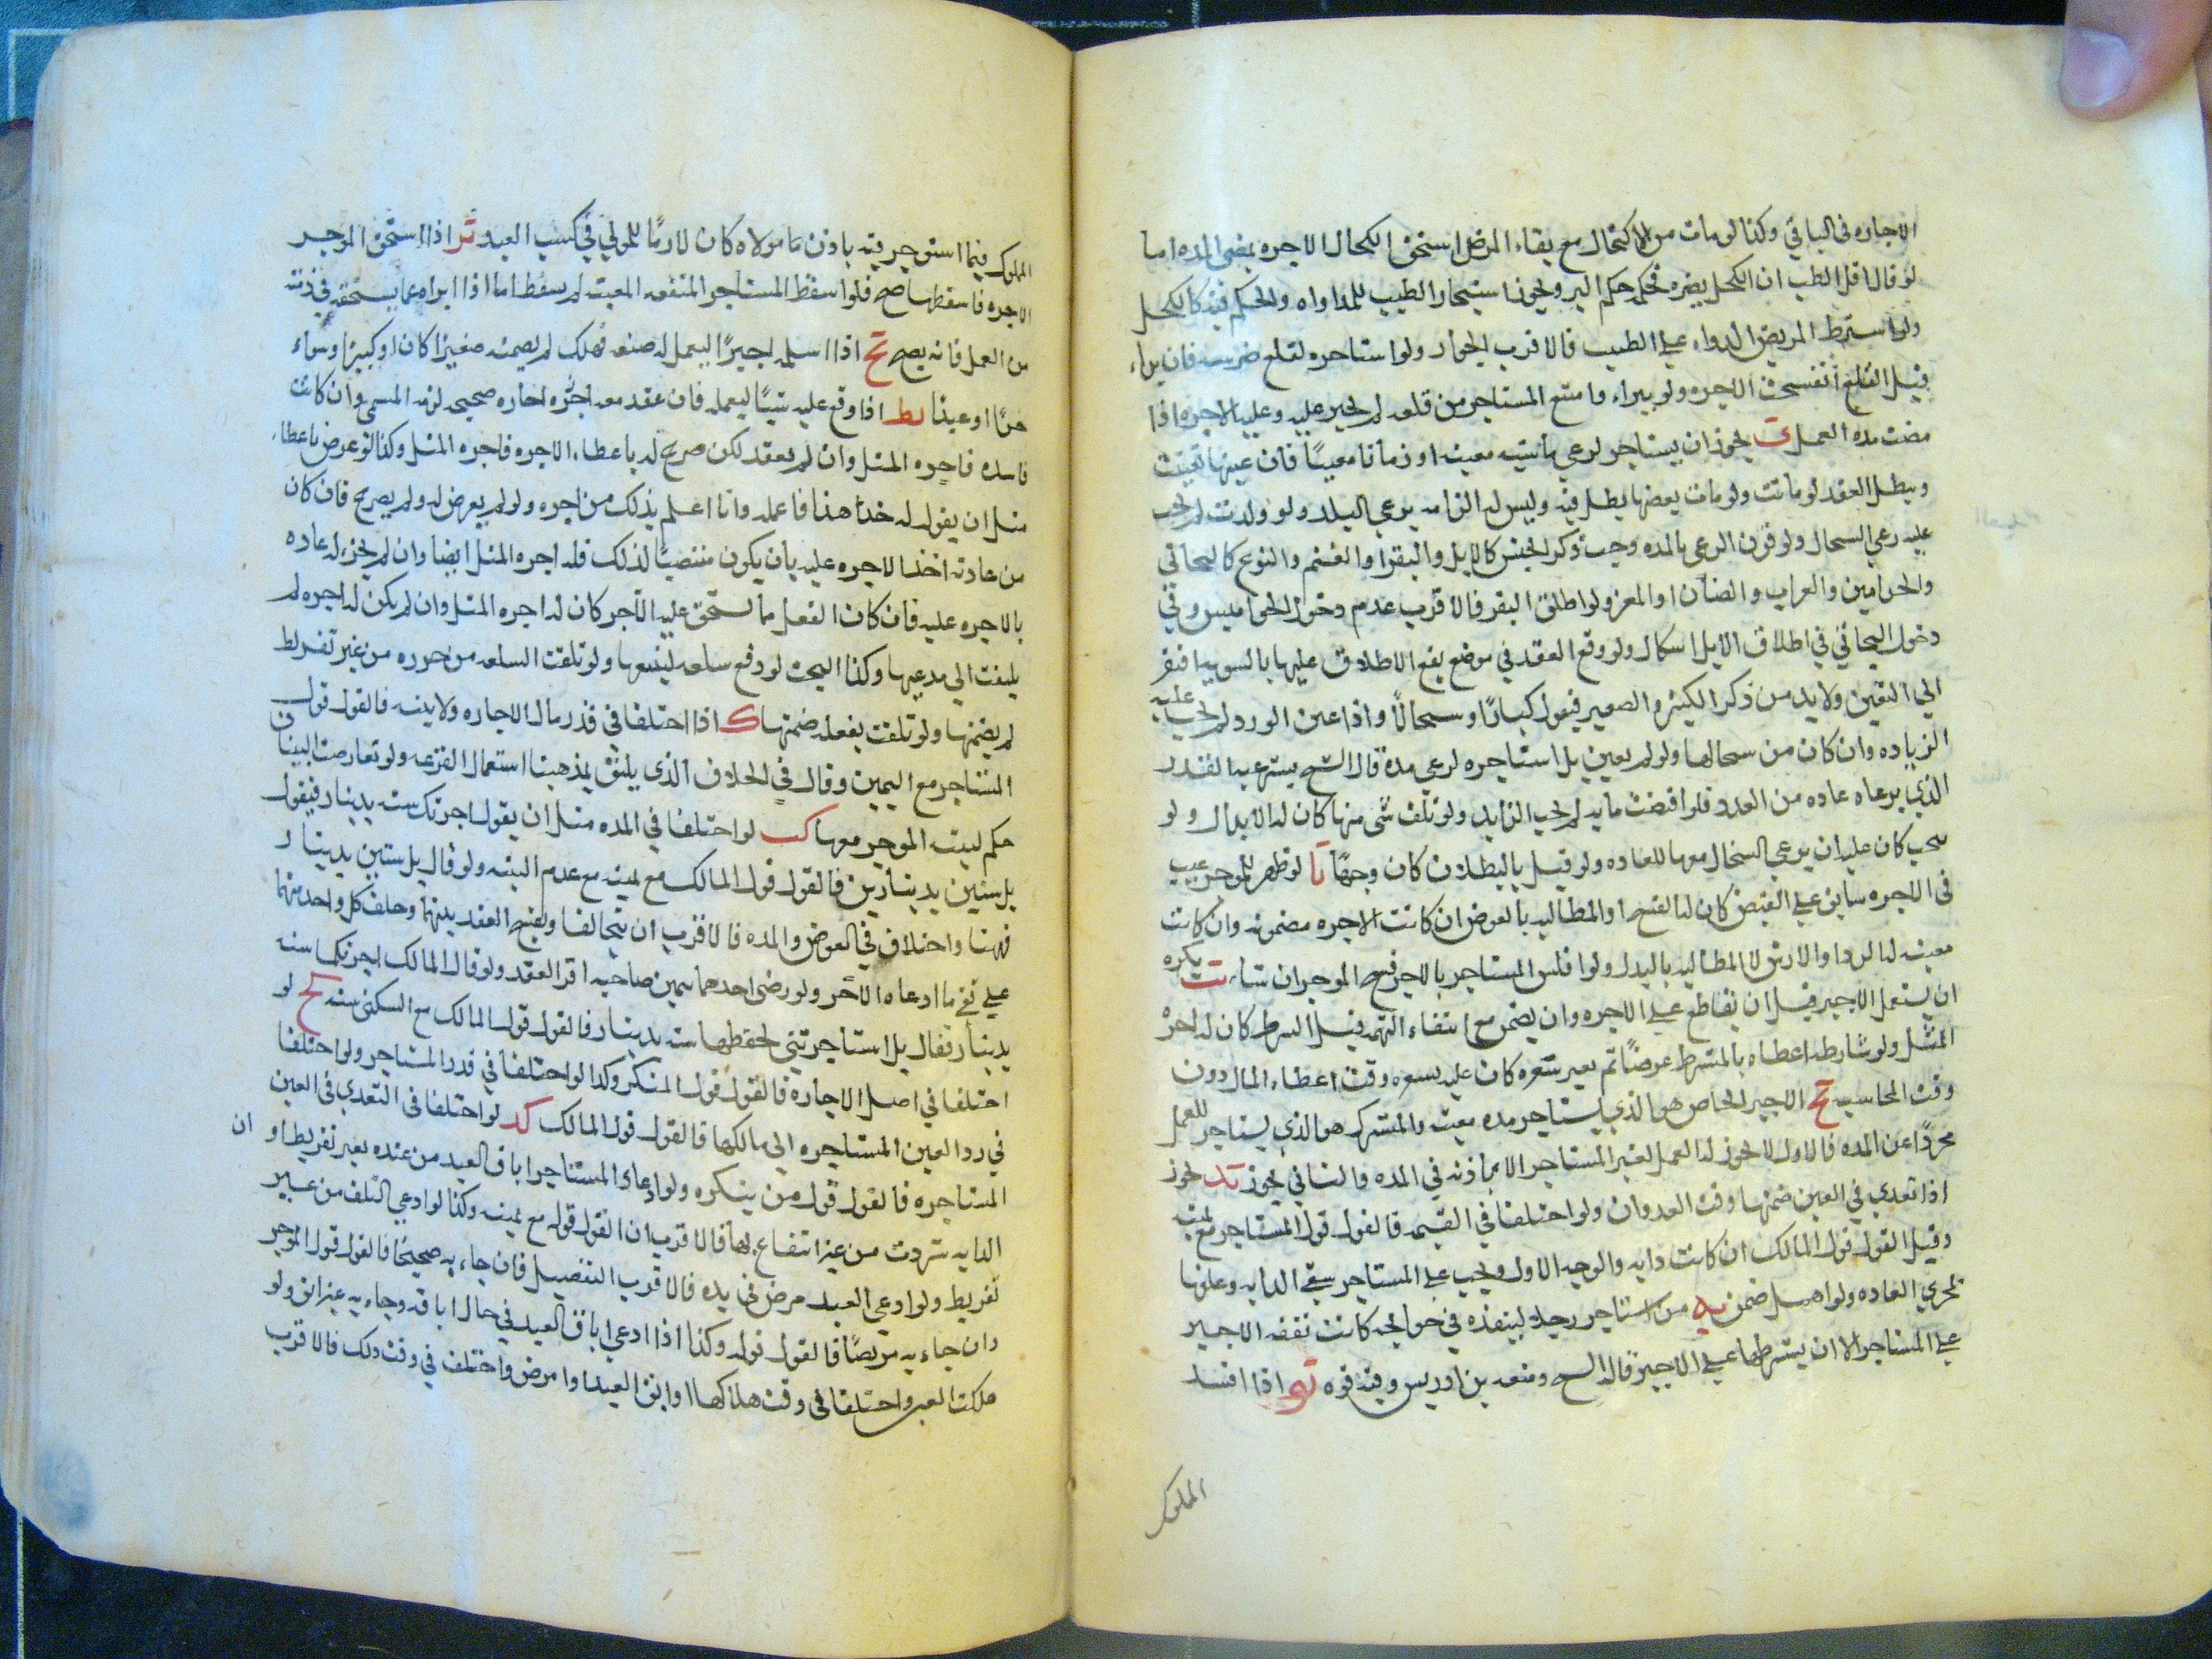 الاجاره فى الباقي وكذا لو مات من الاكتحال مع بقاء المرض استحق الكحال الاجره بمضي المده اما
لو قال اهل الطب ان الكحل يضره فحكم حكم البر ويجوز استيجار الطبيب للمداواه والحكم فيه كالكحل
ولو اشترط المريض الدواء على الطبيب فالاقرب الجواز ولو استاجره لقلع ضرسه فان براء
قبل القلع انفسخت الاجره ولو لم يبراء وامتنع المستاجر من قلعه لم يجبر عليه وعليه الاجره اذا
مضت مده العمل ى يجوز ان يستاجر لرعي ماشيه معينه او زمانا معينا فان عينها تعينت
وبطل العقد لو ماتت ولو مات بعضها بطل فيه وليس له الزامه برعي البدل ولو ولدت لم يجب
عليه رعي السخال ولو قرن الرعي بالمده وجب ذكر الجنس كالابل والبقر او الغنم والنوع كالبخاتي
والجواميس والعراب والضان او المعز ولو اطلق البقر فالاقرب عدم دخول الجواميس وفي
دخول البخاتي في اطلاق الابل اشكال ولو وقع العقد في موضع يقع الاطلاق عليها بالسويه افتقر
الى التعيين ولابد من ذكر الكبير والصغير فيقول كبارًا او سخالًا واذا عين العدد لم يجب عليه
الزياده وان كان من سخالها ولو لم يعين بل استاجره لرعي مده قال الشيخ يسترعيه القدر
الذي يرعاه عاده من العدد فلو اقبضه مايه لم يجب الزايد ولو تلف شى منها كان له الابدال ولو
نتجت كان عليه ان يرعي السخال معها للعاده ولو قيل بالبطلان كان وجهًا يا لو ظهر للموجر عيب
فى الاجره سابق على القبض كان له الفسخ او المطالبه بالعوض ان كانت الاجره مضمونه وان كانت
معينه له الرد او الارش لا المطالبه بالبدل ولو افلس المستاجر بالاجر فسخ الموجر ان شاء يب يكره
ان يستعمل الاجير قبل ان يقاطع على الاجره وان يضمن مع انتفاء التهمه قبل الشرط كان له اجره
المثل ولو شارطه اعطاه بالمشترط عرضًا ثم بغير سعره كان عليه بسعره وقت اعطاء المال دون
وقت المحاسبه يج الاجير الخاص هو الذي يستاجر مده معينه والمشترك هو الذي يستاجر للعمل
مجردًا عن المده فالاول لا يجوز له العمل لغير المستاجر الا باذنه في المده والثاني يجوز يد يجوز
اذا تعدى في العين ضمنها وقت العدوان ولو اختلفا في القيمه فالقول قول المستاجر مع يمينه
وقيل القول قول المالك ان كانت دابه والوجه الاول ويجب على المستاجر سقي الدابه وعلفها
بمجري العاده ولو اهمل ضمن يه من استاجر رجلا لينفذه في حوايجه كانت نفقه الاجير
على المستاجر الا ان يشترطها على الاجير قاله الشيخ ومنعه بن ادريس وفيه قوه يو اذا افسد
المملوك
المملوك فيما استوجر فيه باذن مامولاه كان لازمًا للمولي في كسب العبد يز اذا استحق الموجر
الاجره فاسقطها صح فلو اسقط المستاجر المنفعه المعينه لم يسقط اما اذا ابراه عما يستحقه في ذمته
من العمل فانه يصح يح اذا سلم اجيرًا ليعمل له صنعه فهلك لم يضمنه صغيرًا كان او كبيرًا وسواء
حرًا او عبدًا يط اذا وقع عليه شيئًا ليعمله فان عقد معه اجره اجاره صحيحه لزمه المسمى وان كانت
فاسده فاجره المثل وان لم يعقد لكن صرح له باعطاء الاجره فاجره المثل وكذا لو عرض باعطاء
مثل ان يقول له خذ هذا فاعمله وانا اعلم بذلك من اجره ولو لم يعرض له ولم يصرح فان كان
من عادته اخذ الاجره عليه بان يكون منتصبًا لذلك فله اجره المثل ايضا وان لم يجر له عاده
بالاجره عليه فان كان الفعل مما يستحق عليه الاجر كان له اجره المثل وان لم يكن له اجره لم
يلتفت الى مدعيها وكذا البحث لو دفع سلعه ليبيعها ولو تلفت السلعه من حرزه من غير تفريط
لم يضمنها ولو تلفت بفعله ضمنها ك اذا اختلفا في قدر مال الاجاره ولا بينه فالقول قول
المستاجر مع اليمين وقال في الخلاف الذي يليق بمذهبنا استعمال القرعه ولو تعارضت البينتان
حكم لبينه الموجر معها كب لو اختلفا في المده مثل ان يقول اجرتك سنه بدينار فيقول
بل سنتين بدينارين فالقول قول المالك مع يمينه مع عدم البينه ولو قال بل سنتين بدينار
فهنا واختلاف في العوض والمده فالاقرب ان يتحالفا ويفسخ العقد بينهما وحلف كل واحد منهما
على نفى ما ادعاه الاخر ولو رضى احدهما بيمين صاحبه اقر العقد ولو قال المالك اجرتكها سنه
بدينار فقال بل استاجرتني لحفظها سنه بدينار فالقول قول المالك مع السكنى سنه كج لو
اختلفا في اصل الاجاره فالقول قول المنكر وكذا لو اختلفا في قدر المستاجر ولو اختلفا
في رد العين المستاجره الى مالكها فالقول قول المالك كد لو اختلفا فى التعدي فى العين
المستاجره فالقول قول من ينكره ولو ادعاء المستاجر اباق العبد من عنده بغير تفريط او ان
الدابه شردت من غير انتفاع بها فالاقرب ان القول قوله مع يمينه وكذا لو ادعي التلف من غير
تفريط ولو ادعي العبد مرض في يده فالاقرب التفصيل فان جاء به صحيحًا فالقول قول الموجر
وان جاء به مريضًا فالقول قوله وكذا اذا ادعي اباق العبد في حال اباقه وجاء به غير ابق ولو
هلكت العين واختلفا في وقت هلاكها او ابق العبد او مرض واختلف في وقت ذلك فالاقرب